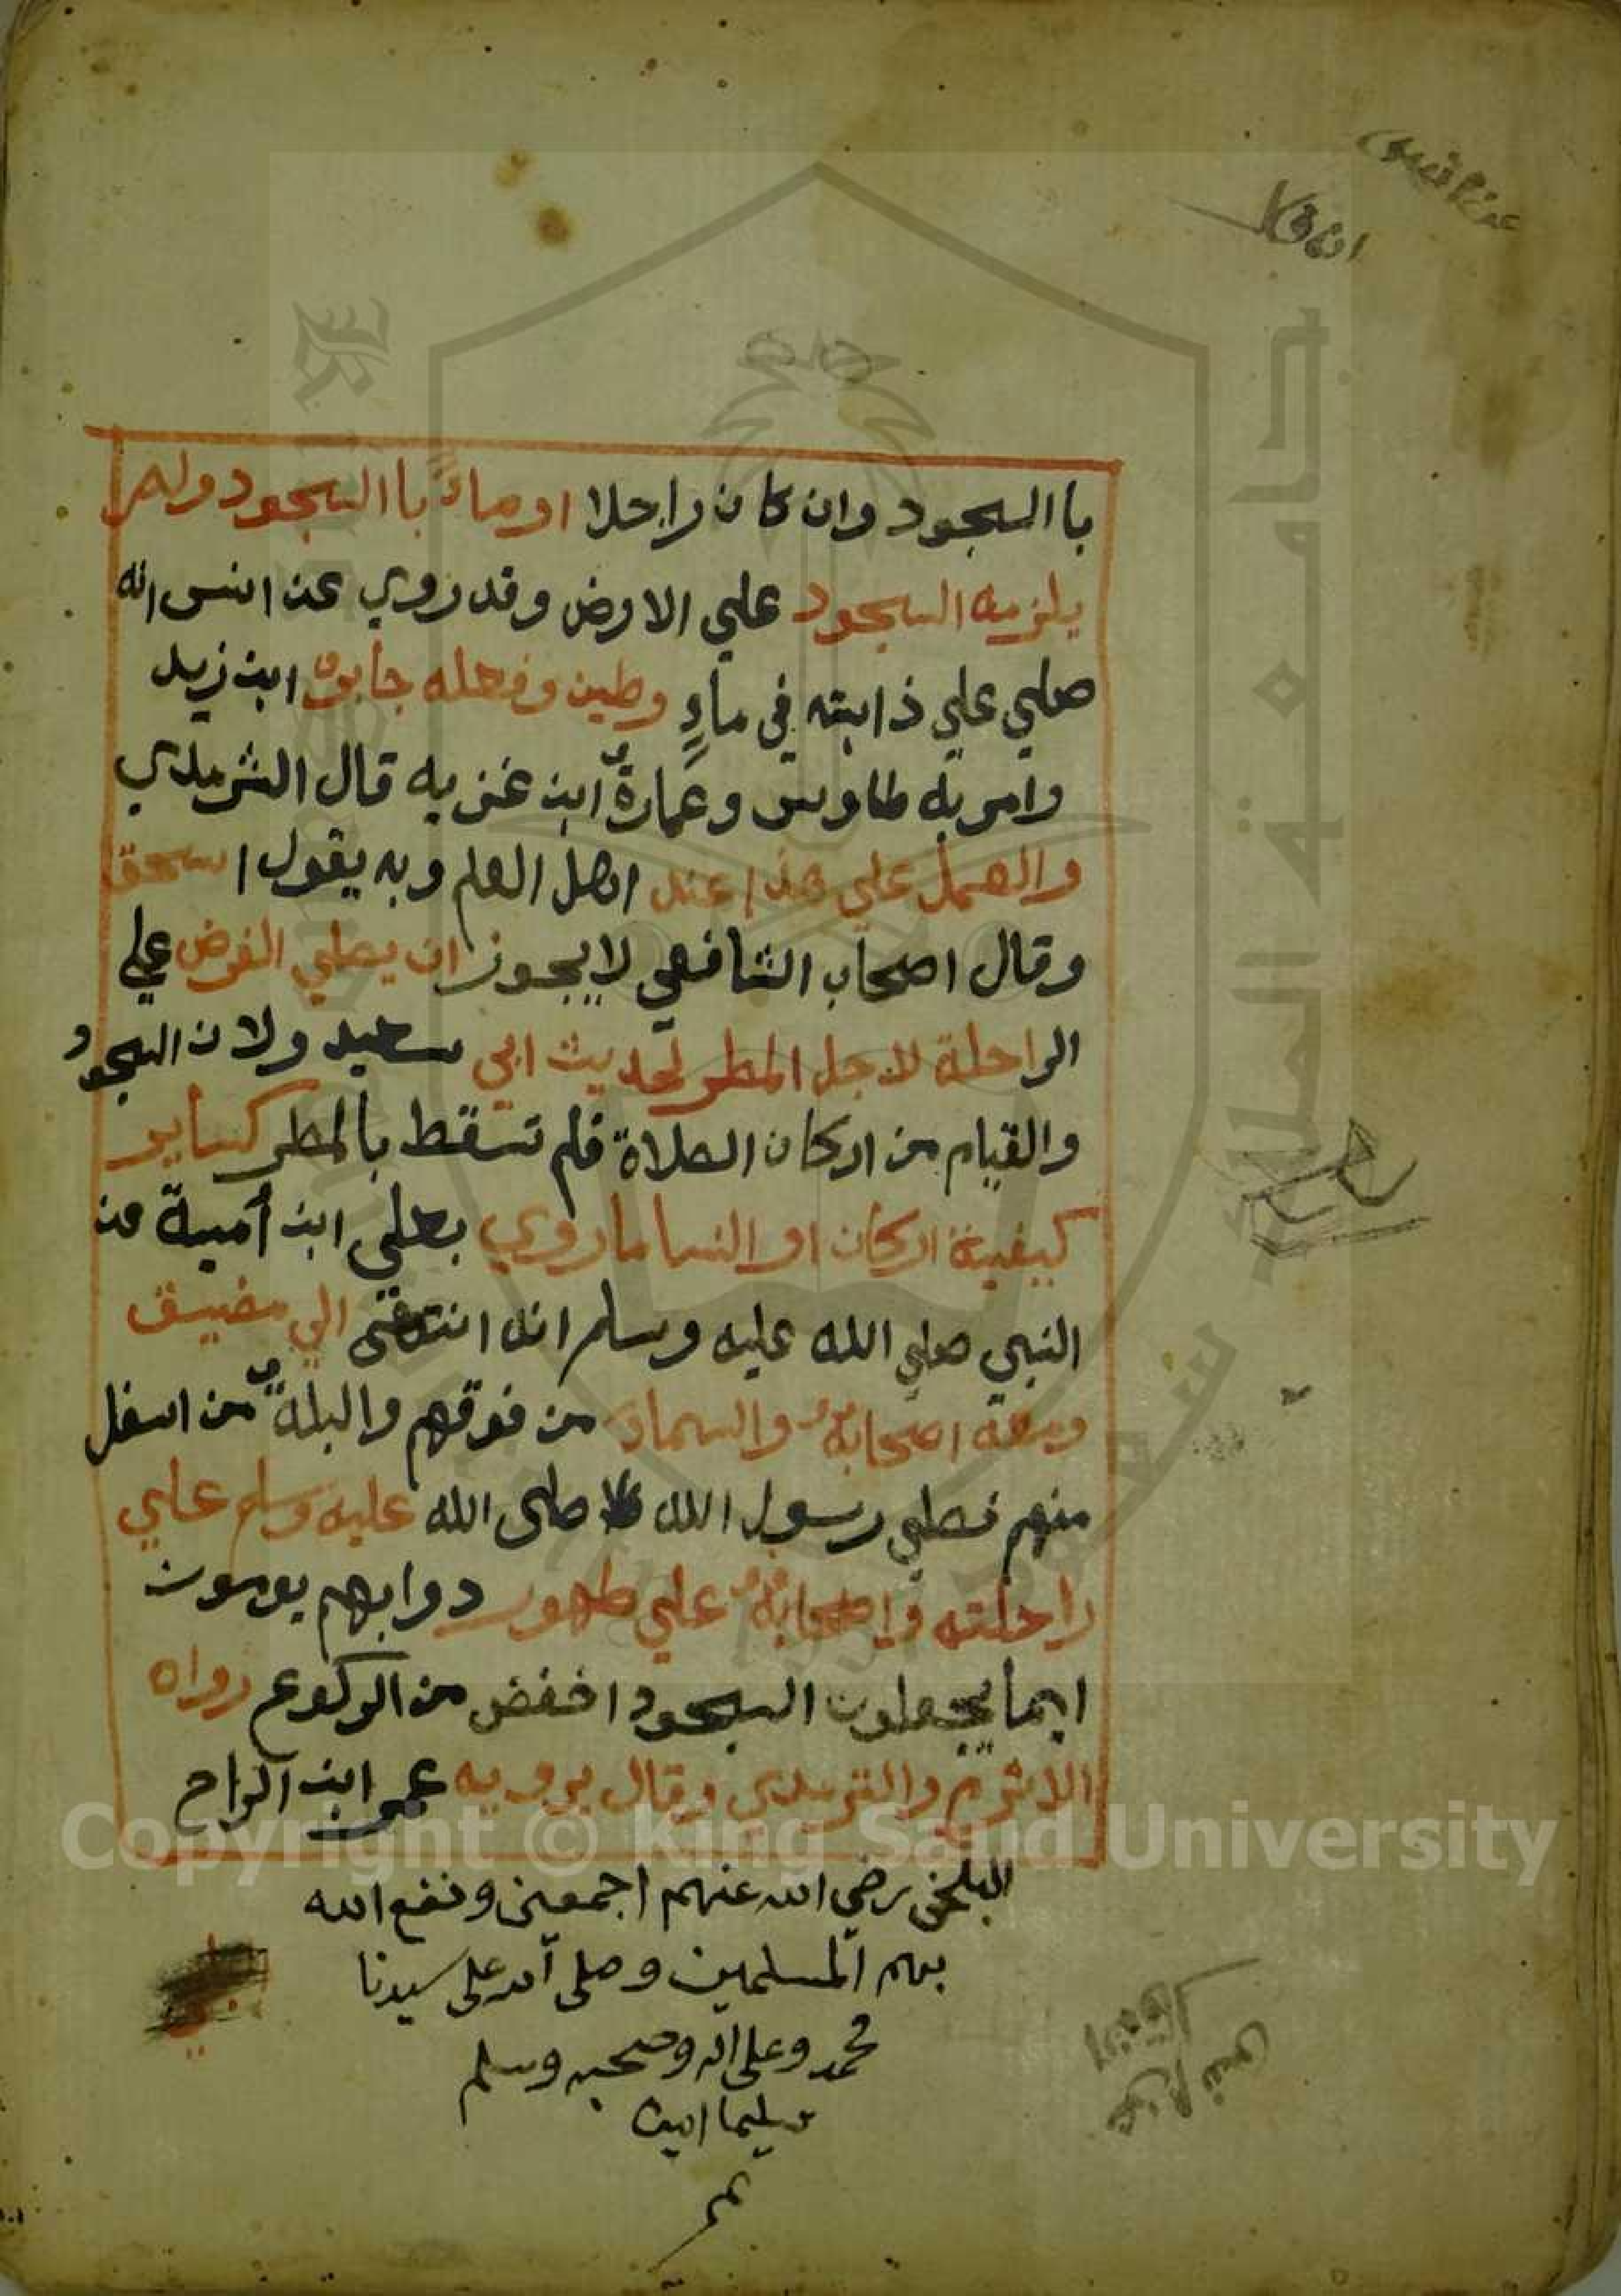 باالسجود وان كان راجلا اوماءً باالسجود ولم
يلزمه السجود علي الارض وقد روي عن انس انه
صلي علي ذابته في ماءٍ وطين وفعله جابرٌ ابن زيد
وامر به طاوس وعمارةٌ ابن غزيه قال الترمدي
والعمل علي هذا عند اهل العلم وبه يقول اسحق
وقال اصحاب الشافعي لا يجوز ان يصلي الفرض علي
الراحلة لاجل المطر لحديث ابي سعيد ولان السجود
والقيام من اركان الصلاة فلم تسقط بالمطر كساير
كيفية اركان او النسا ما روي يعلي ابن أمية عن
النبي صلي الله عليه وسلم انه انتهى الي مضيق
ومعه اصحابه والسماء من فوقهم والبلةٌ من اسفل
منهم فصلي رسول الله صلى الله عليه وسلم علي
راحلته واصحابه علي ظهور دوابهم يومون
ايما يجعلون السجود اخفض من الركوع رواه
الاثرم والترمدي وقال يرويه عمر ابن الراح
البلخي رضي الله عنهم اجمعين ونفع الله
بهم المسلمين وصلى الله على سيدنا
محمد وعلى اله وصحبه وسلم
سليما امين
تم
جامعة الملك سعود
1957
Copyright © King Saud University